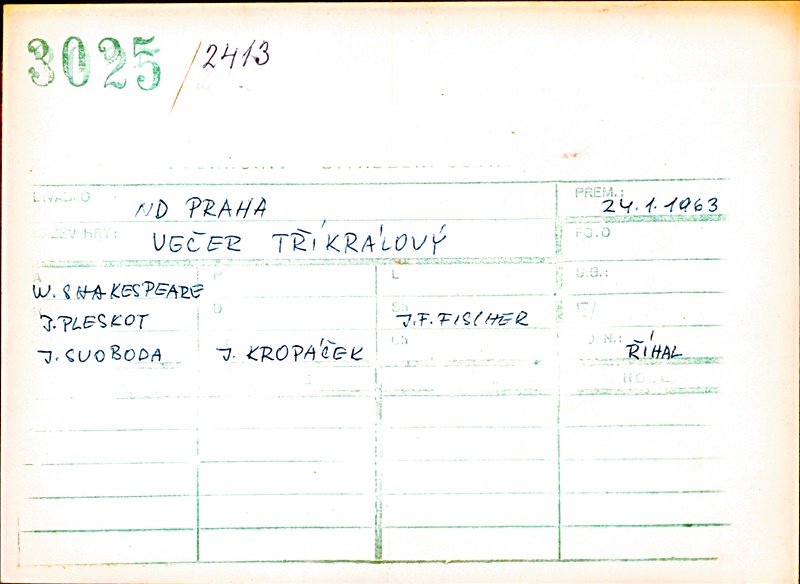 3025 / 2413
DIVADLO ND PRAHA PREM.: 24.1.1963
NÁZEV HRY: VEČER TŘÍKRÁLOVÝ
A P L
W. SHAKESPEARE
J. PLESKOT D J. F. FISCHER
J. SVOBODA J. KROPÁČEK ŘÍHAL